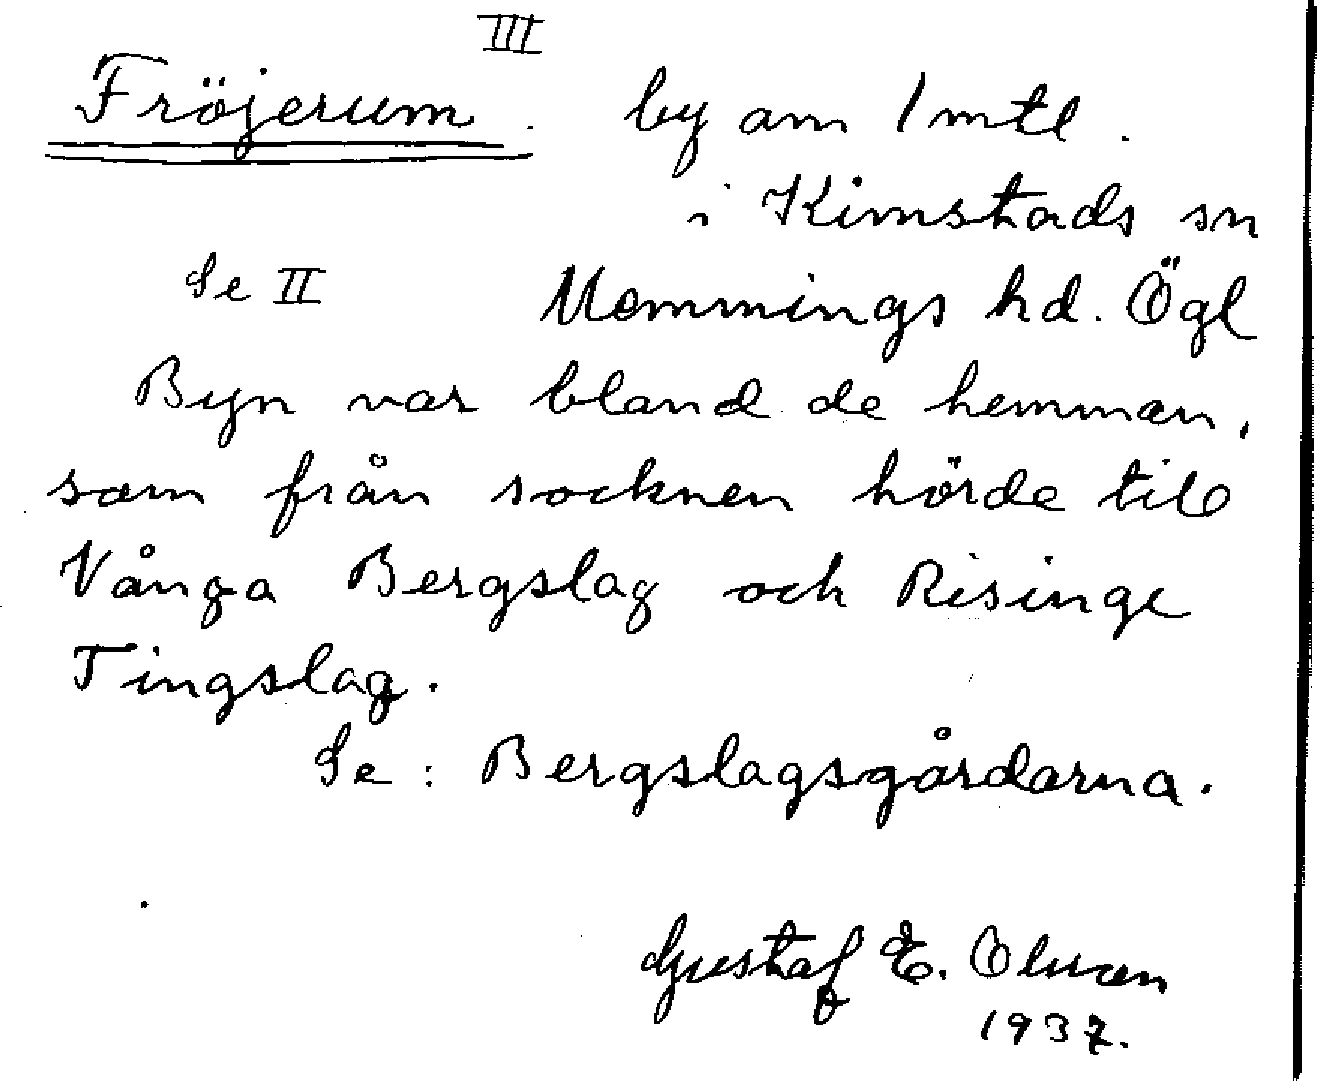 III
Fröjerum. by om 1 mtl.
i Kimstads sn
Se II Memmings hd. Ögl
Byn var bland de hemman,
som från socknen hörde till
Vånga Bergslag och Risinge
Tingslag.
Se: Bergslagsgårdarna.
Gustaf E.
1937.